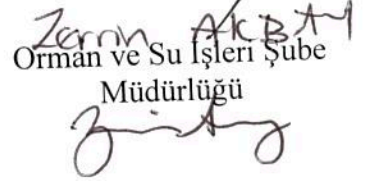 Zerrin AKBAY
Orman ve Su İşleri Şube
Müdürlüğü